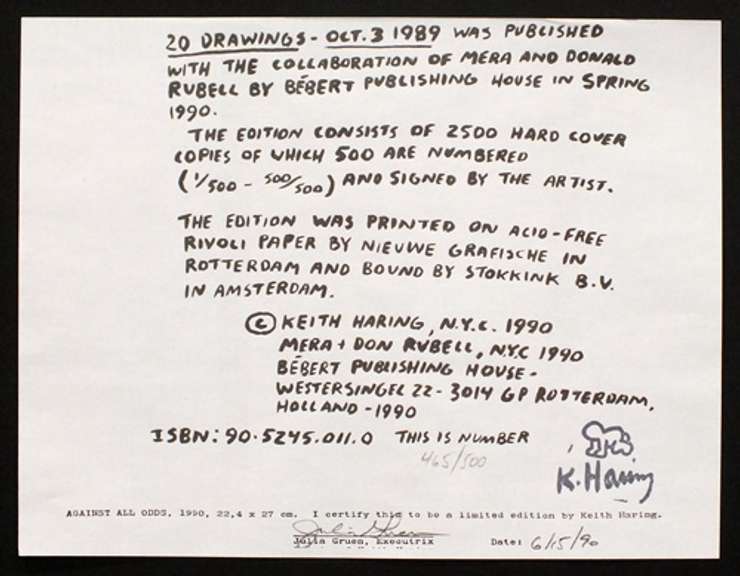 20 DRAWINGS - OCT. 3 1989 WAS PUBLISHED
WITH THE COLLABORATION OF MERA AND DONALD
RUBELL BY BÉBERT PUBLISHING HOUSE IN SPRING
1990.
THE EDITION CONSISTS OF 2500 HARD COVER
COPIES OF WHICH 500 ARE NUMBERED
(1/500 - 500/500) AND SIGNED BY THE ARTIST.
THE EDITION WAS PRINTED ON ACID-FREE
RIVOLI PAPER BY NIEUWE GRAFISCHE IN
ROTTERDAM AND BOUND BY STOKKINK B.V.
IN AMSTERDAM.
© KEITH HARING, N.Y.C. 1990
MERA + DON RUBELL, NYC 1990
BÉBERT PUBLISHING HOUSE -
WESTERSINGEL 22 - 3014 GP ROTTERDAM,
HOLLAND - 1990
ISBN: 90.5245.011.0 THIS IS NUMBER
465/500
K. Haring
AGAINST ALL ODDS, 1990, 22,4 x 27 cm. I certify this to be a limited edition by Keith Haring.
Julia Gruen
Julia Gruen, Executrix Date: 6/15/90